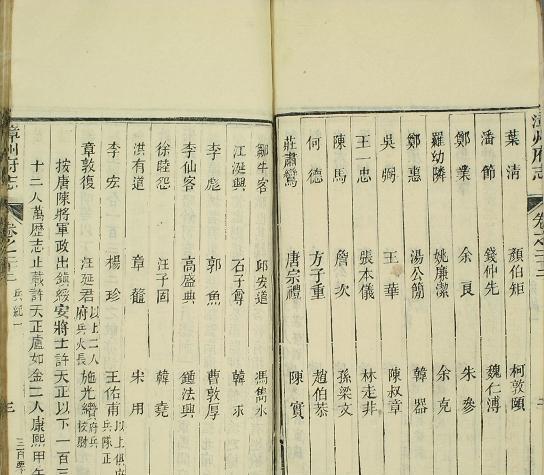 漳州府志
卷之二十二
葉清 顏伯矩 柯敦頤
潘節 錢仲先 魏仁溥
鄭業 余良 朱參
羅幼隣 姚廉潔 余克
鄭惠 湯公簡 韓器
吳弼 王華 陳叔章
王一忠 張本儀 林走非
陳馬 詹次 孫梁文
何德 方子重 趙伯恭
莊肅鸞 唐宗禮 陳實
鄒牛客 邱安道 馮雋水
江涎興 石子尊 韓求
李彪 郭魚 曹敦厚
李仙客 高盛典 鍾法興
徐睦怨 汪子固 韓堯
洪有道 章龍 宋用
李宏 楊珍 王佑甫 以上俱府兵隊正
章敦復 汪延君 以上二人府兵火長 施光纘 府兵校尉
按唐陳將軍政出鎮綏安將士許天正以下一百三
十二人萬歷志止載許天正盧如金二人康熙甲午
漳州府志
卷之二十二
兵紀一
三